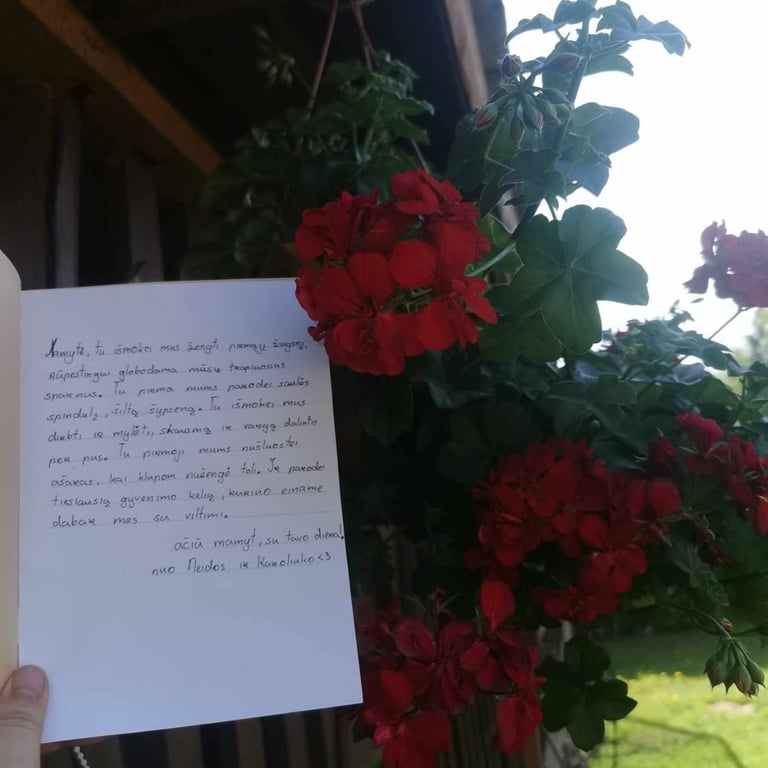 Mamyte, tu išmokei mus žengti pirmąjį žingsnį,
rūpestingai globodama mūsų trapiuosius
sparnus. Tu pirma mums parodei saulės
spindulį, šiltą šypseną. Tu išmokei mus
dirbti ir mylėti, skausmą ir vargą dalintis
per pus. Tu pirmoji mums nušluostei
ašaras, kai klupom nužengę toli. Tu parodei
tiesiausią gyvenimo kelią, kuriuo einame
dabar mes su viltimi.
ačiū mamyt, su tavo diena!
nuo Neidos ir Karoliuko <3